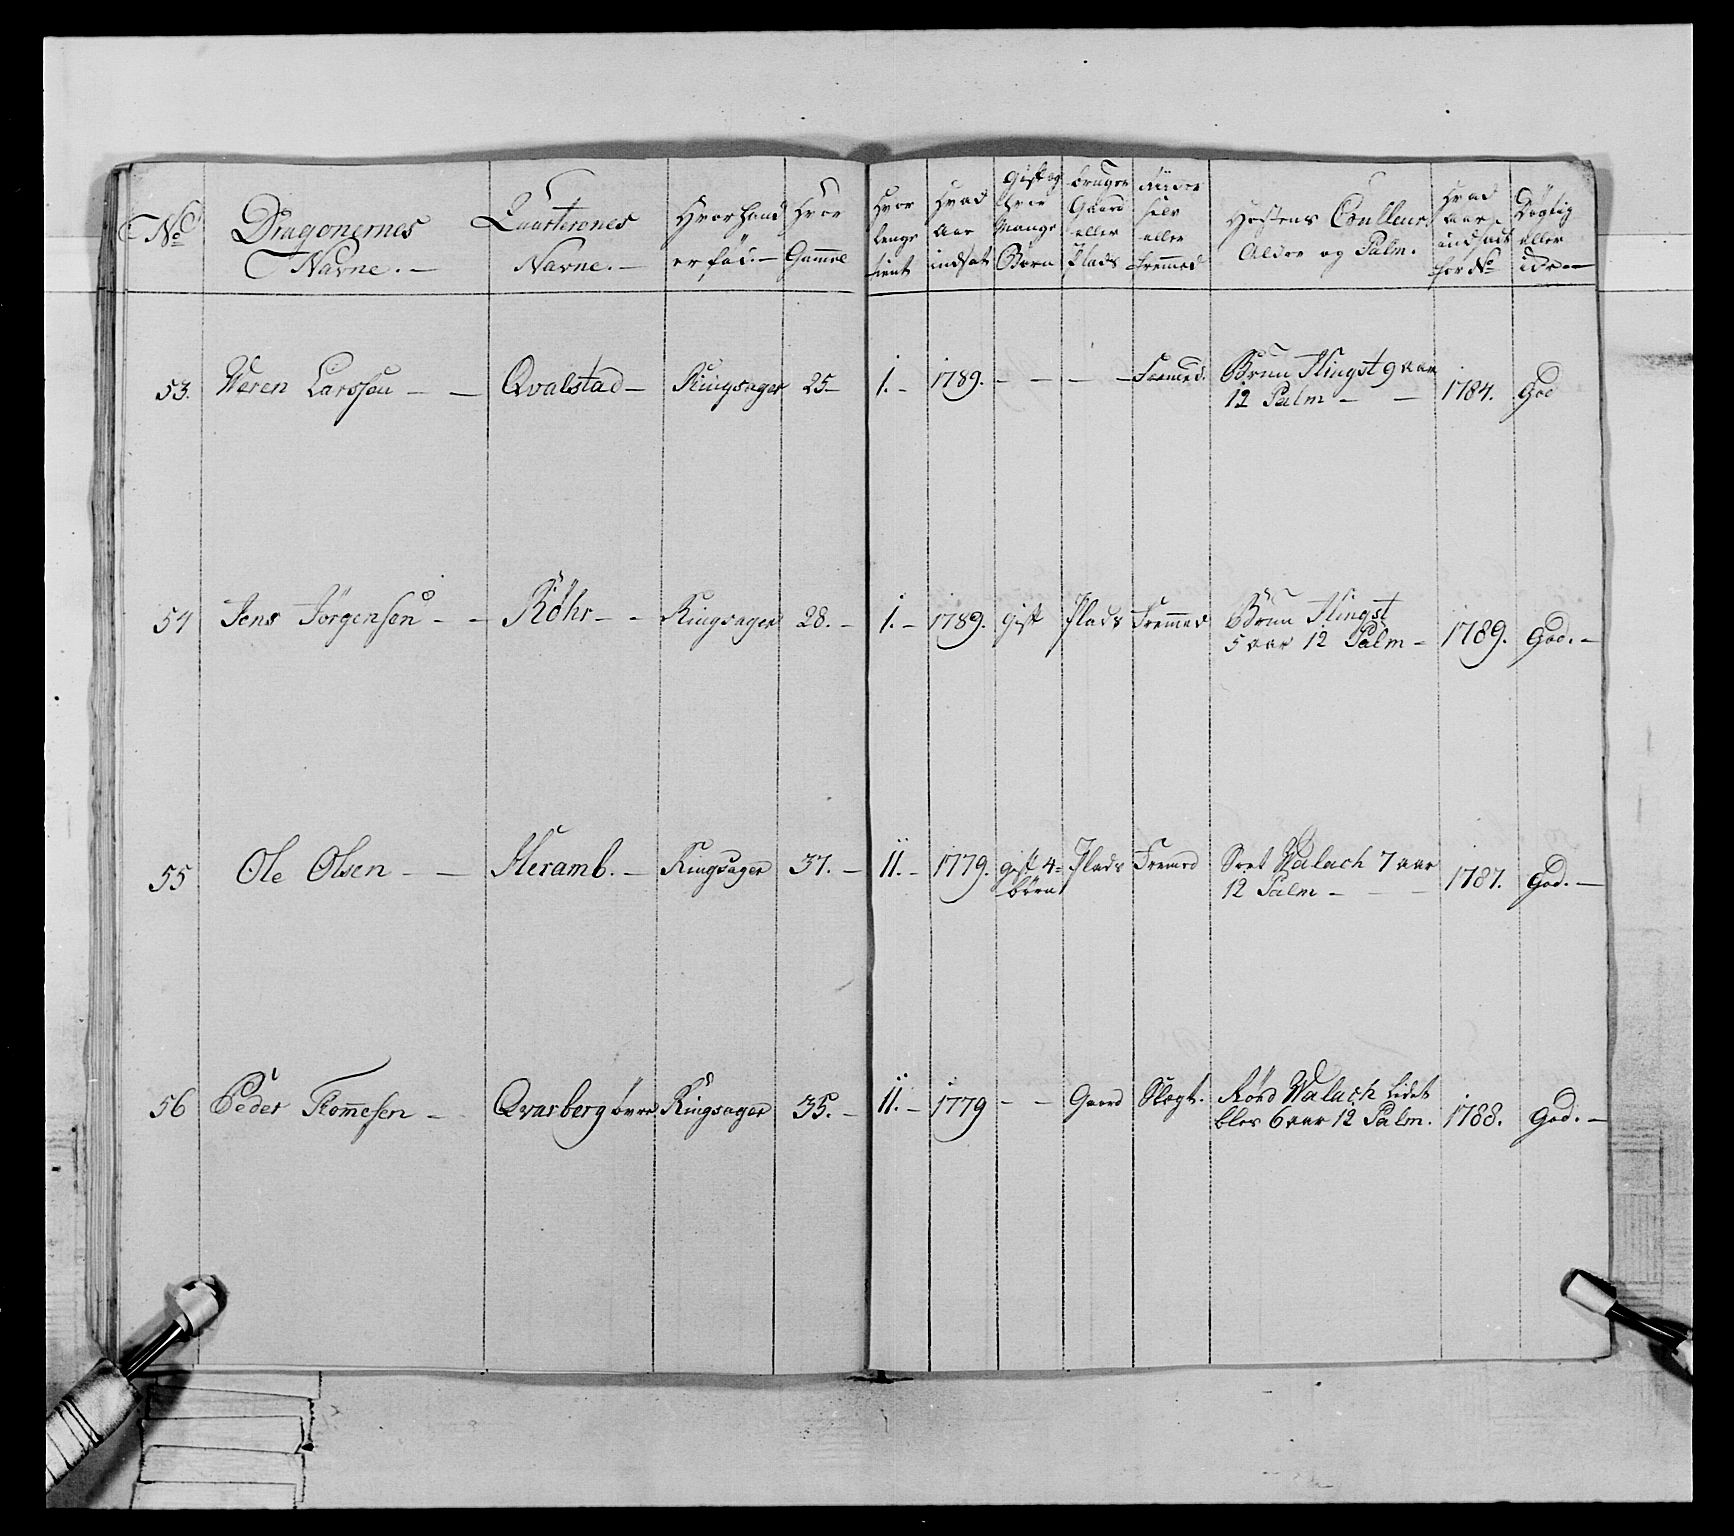 No
Dragonernes
Navne. —
Quarterenes
Navne. —
Hvor hand
er fød. —
Hvor
Gammel
Hvor
lenge
tient
Hvad
Aar
indsat
Gift og
hvor
Mange
Børn
bruger
Gaard
eller
Plads
selv
eller
Fremmed
Hestens Coulleur
Alder og Palm.
Hvad
aar
indsadt
for No
Døgtig
eller
53. Larssen — — Qvalstad — Ringsager 25 — 1. — 1789. — — — — Fremed. Brun Hingst 9 aar
12 Palm — — 1784. God
54 Jens Jørgensen — — Røhr — — Ringsager 28. — 1. — 1789. gift Plads Fremmed Brun Hingst
5 aar 12 Palm — 1789. God. —
55 Ole Olsen — — Heramb. — Ringsager 37. — 11. — 1779. gift 4 Plads Fremed Sort Valach 7 aar
børn 12 Palm — — — 1787. God. —
56 Peder Tommesen — Qvarberg øvre Ringsager 35. — 11. — 1779 — — Gaard Slegt. Rød Walach lidet
bles 6 aar 12 Palm. 1788. God. —